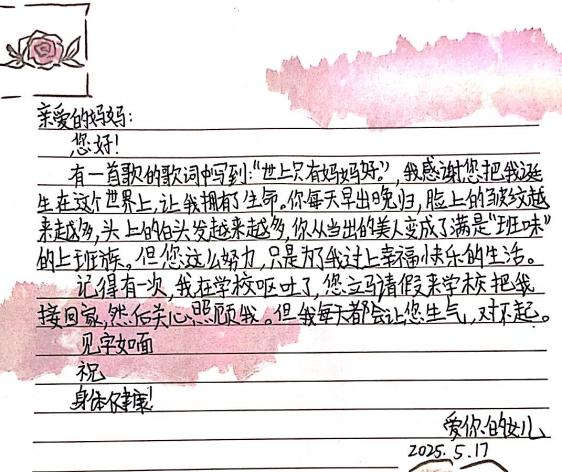 亲爱的妈妈:
您好!
有一首歌的歌词中写到:“世上只有妈妈好。”,我感谢您把我诞
生在这个世界上,让我拥有了生命。你每天早出晚归,脸上的皱纹越
来越多,头上的白头发越来越多,你从当出的美人变成了满是“班味”
的上班族。但您这么努力,只是为了我过上幸福快乐的生活。
记得有一次,我在学校呕吐了,您立马请假来学校把我
接回家,然后关心照顾我。但我每天都会让您生气,对不起。
见字如面
祝
身体健康!
爱你的女儿
2025.5.17